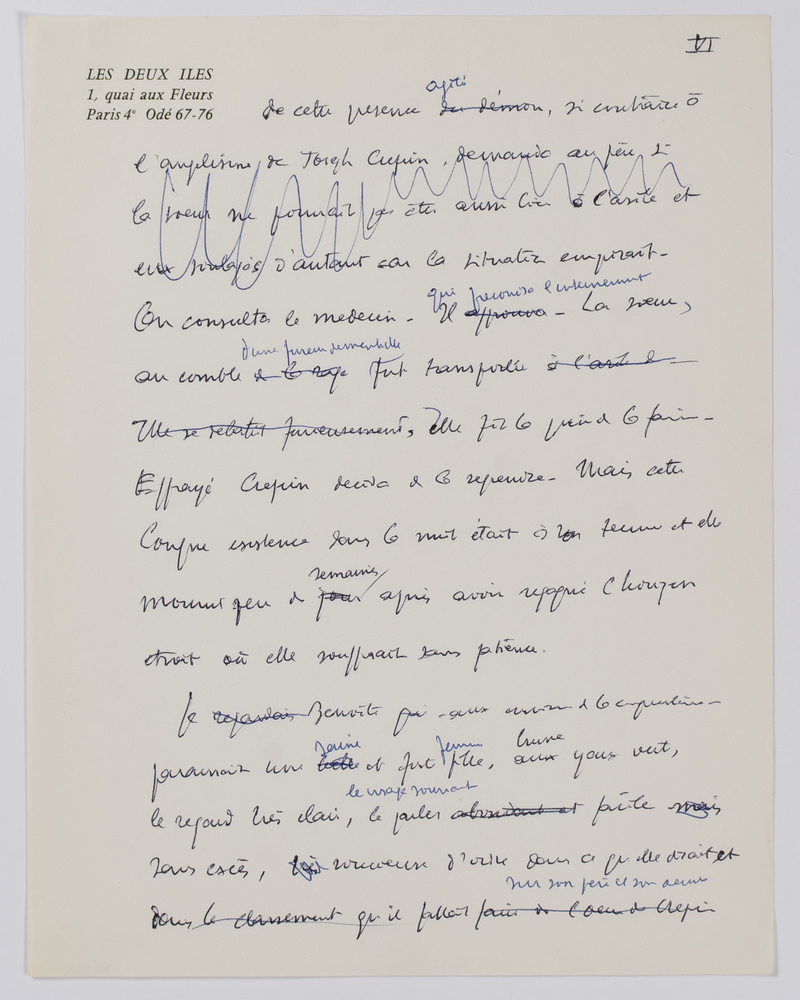 VI
LES DEUX ILES
1, quai aux Fleurs
Paris 4e Odé 67-76
agité
de cette presence du démon, si contraire à
l'angelisme de Joseph Crepin, demanda au père si
la soeur ne pourrait pas être aussi bien à l'asile et
eux soulagés d'autant car la situation empirait -
qui preconisa l'internement
On consulta le medecin - Il approuva - La soeur,
d'une fureur dementielle
au comble de la rage fut transportée à l'asile
Elle se debattit furieusement, Elle fit la grève de la faim -
Effrayé Crepin decida de la reprendre - Mais cette
longue existence dans la nuit était à son terme et elle
semaines
mourut peu de jours après avoir regagné l'
etroit où elle souffrait sans patience.
Je regardais Benoite qui - aux environs de la cinquantaine -
saine femme brune
paraissait une belle et fort fille, aux yeux vert,
le visage souriant
le regard très clair, le parler abondant et facile mais
sans excès, soucieuse d'ordre dans ce qu'elle disait et
sur son père et son oeuvre
dans le classement qu'il fallait faire de l'oeuvre de Crepin